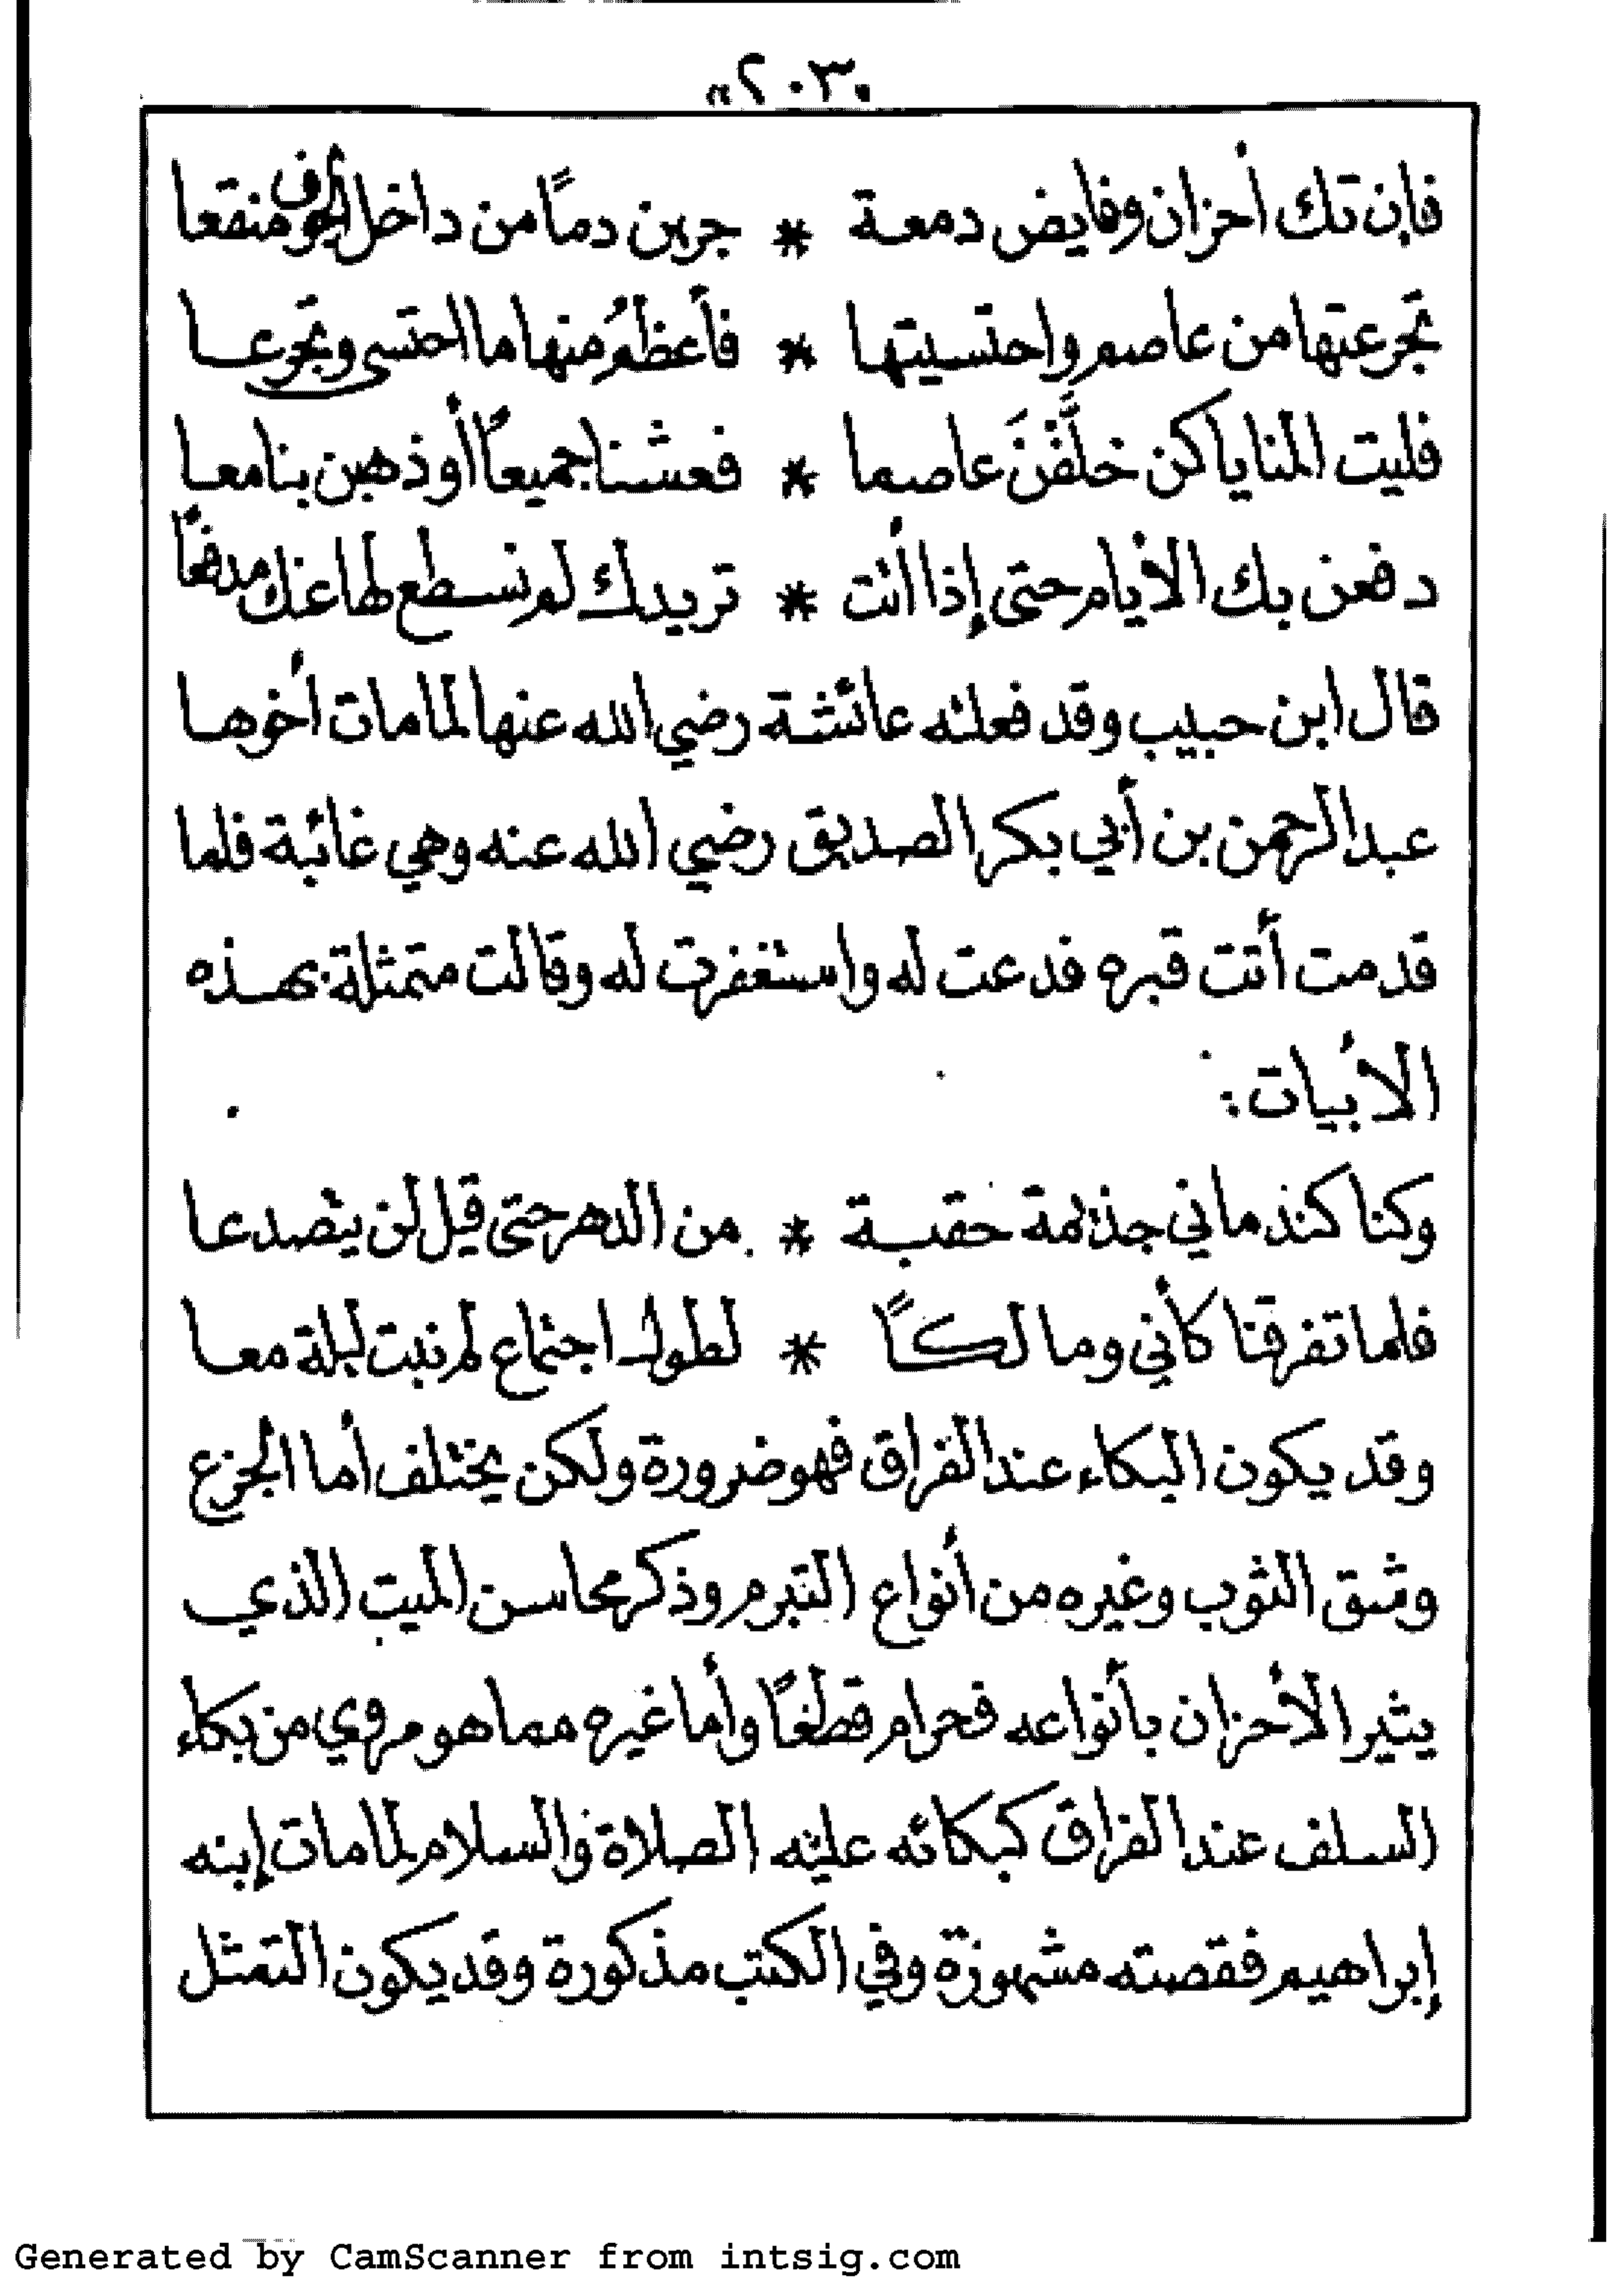 «٢٠٣»
فإن تك أحزان وفايض دمعة * جرين دمًا من داخل الجوف منقعا
تجرعتها من عاصم واحتسيتها * فأعظمُ منها ما احتسى وتجرعا
فليت المنايا كن خلَّفْنَ عاصما * فعشنا جميعًا أو ذهبن بنا معا
دفعن بك الأيام حتى إذا أتت * تريدك لم نسطع لها عنك مدفعًا
قال ابن حبيب وقد فعلته عائشة رضي الله عنها لما مات أخوها
عبد الرحمن بن أبي بكر الصديق رضي الله عنه وهي غائبة فلما
قدمت أتت قبره فدعت له واستغفرت له وقالت متمثلة بهذه
الأبيات:
وكنا كندماني جذيمة حقبة * من الدهر حتى قيل لن يتصدعا
فلما تفرقنا كأني ومالكًا * لطول اجتماع لم نبت ليلة معا
وقد يكون البكاء عند الفراق فهو ضرورة ولكن يختلف أما الجزع
وشق الثوب وغيره من أنواع التبرم وذكر محاسن الميت الذي
يثير الأحزان بأنواعه فحرام قطعًا وأما غيره مما هو مروي من بكاء
السلف عند الفراق كبكائه عليه الصلاة والسلام لما مات إبنه
إبراهيم فقصته مشهورة وفي الكتب مذكورة وقد يكون التمثل
Generated by CamScanner from intsig.com